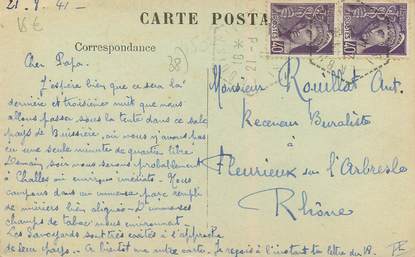 21-8-41-
15 €
CARTE POSTA
Correspondance
38
Cher Papa.
J'espère bien que ce sera la
dernière et troisième nuit que nous
allons passer sous la tente dans ce sale
pays de Buissière, où nous n'avons pas
eu une seule minute de quartier libre
Demain soir nous serons probablement
à Challes où
campons dans un immense parc rempli
de mûriers bien alignés. D'immenses
champs de tabac nous environnent.
Les Savoyards sont très
de leur pays... A bientôt une autre carte. Je reçois à l'instant ta lettre du 18.
Monsieur Rouillat Ant.
Receveur Buraliste
à
Fleurieux sur l'Arbresle
Rhône